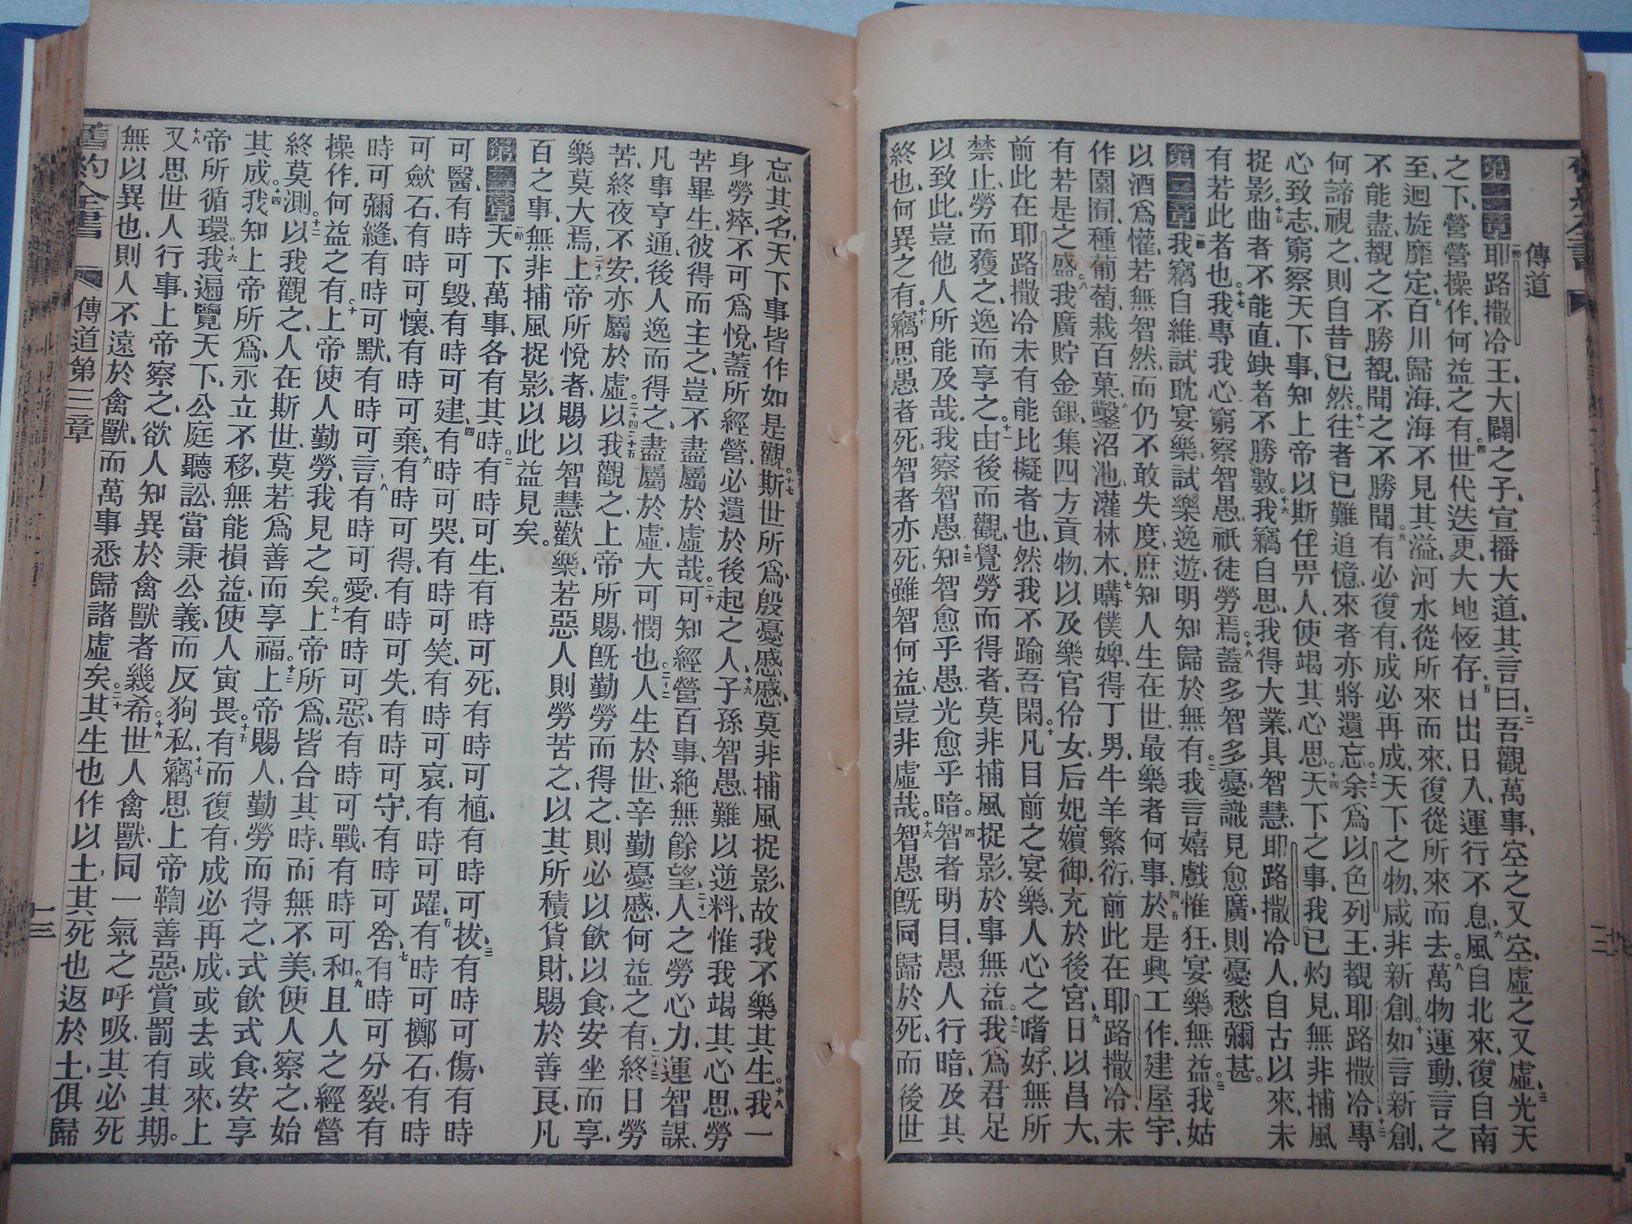 傳道
第一章耶路撒冷王大闢之子宣播大道其言曰吾觀萬事空之又空虛之又虛光天
之下營營操作何益之有世代迭更大地恆存日出日入運行不息風自北來復自南
至迴旋靡定百川歸海海不見其溢河水從所來而來復從所來而去萬物運動言之
不能盡覩之不勝覩聞之不勝聞有必復有成必再成天下之物咸非新創如言新創
何諦視之則自昔已然往者已難追憶來者亦將遺忘余爲以色列王覩耶路撒冷專
心致志窮察天下事知上帝以斯任畀人使竭其心思天下之事我已灼見無非捕風
捉影曲者不能直缺者不勝數我竊自思我得大業具智慧耶路撒冷人自古以來未
有若此者也我專我心窮察智愚祇徒勞焉蓋多智多憂識見愈廣則憂愁彌甚
第二章我竊自維試耽宴樂試樂逸遊明知歸於無有我言嬉戲惟狂宴樂無益我姑
以酒爲懽若無智然而仍不敢失度庶知人生在世最樂者何事於是興工作建屋宇
作園囿種葡萄栽百菓鑿沼池灌林木購僕婢得丁男牛羊繁衍前此在耶路撒冷未
有若是之盛我廣貯金銀集四方貢物以及樂官伶女后妃嬪御充於後宮日以昌大
前此在耶路撒冷未有能比擬者也然我不踰吾閑凡目前之宴樂人心之嗜好無所
禁止勞而獲之逸而享之由後而觀覺勞而得者莫非捕風捉影於事無益我爲君足
以致此豈他人所能及哉我察智愚知智愈乎愚光愈乎暗智者明目愚人行暗及其
終也何異之有竊思愚者死智者亦死雖智何益豈非虛哉智愚旣同歸於死而後世
忘其名天下事皆作如是觀斯世所爲殷憂慼慼莫非捕風捉影故我不樂其生我一
身勞瘁不可爲悅蓋所經營必遺於後起之人子孫智愚難以逆料惟我竭其心思勞
苦畢生彼得而主之豈不盡屬於虛哉可知經營百事絶無餘望人之勞心力運智謀
凡事亨通後人逸而得之盡屬於虛大可憫也人生於世辛勤憂慼何益之有終日勞
苦終夜不安亦屬於虛以我觀之上帝所賜旣勤勞而得之則必以飮以食安坐而享
樂莫大焉上帝所悅者賜以智慧歡樂若惡人則勞苦之以其所積貨財賜於善艮凡
百之事無非捕風捉影以此益見矣
第三章天下萬事各有其時有時可生有時可死有時可植有時可拔有時可傷有時
可醫有時可毀有時可建有時可哭有時可笑有時可哀有時可躍有時可擲石有時
可歛石有時可懷有時可棄有時可得有時可失有時可守有時可舍有時可分裂有
時可彌縫有時可默有時可言有時可愛有時可惡有時可戰有時可和且人之經營
操作何益之有上帝使人勤勞我見之矣上帝所爲皆合其時而無不美使人察之始
終莫測以我觀之人在斯世莫若爲善而享福上帝賜人勤勞而得之式飮式食安享
其成我知上帝所爲永立不移無能損益使人寅畏有而復有成必再成或去或來上
帝所循環我遍覽天下公庭聽訟當秉公義而反狥私竊思上帝鞫善惡賞罰有其期
又思世人行事上帝察之欲人知異於禽獸者幾希世人禽獸同一氣之呼吸其必死
無以異也則人不遠於禽獸而萬事悉歸諸虛矣其生也作以土其死也返於土俱歸
舊約全書 傳道第三章 十三